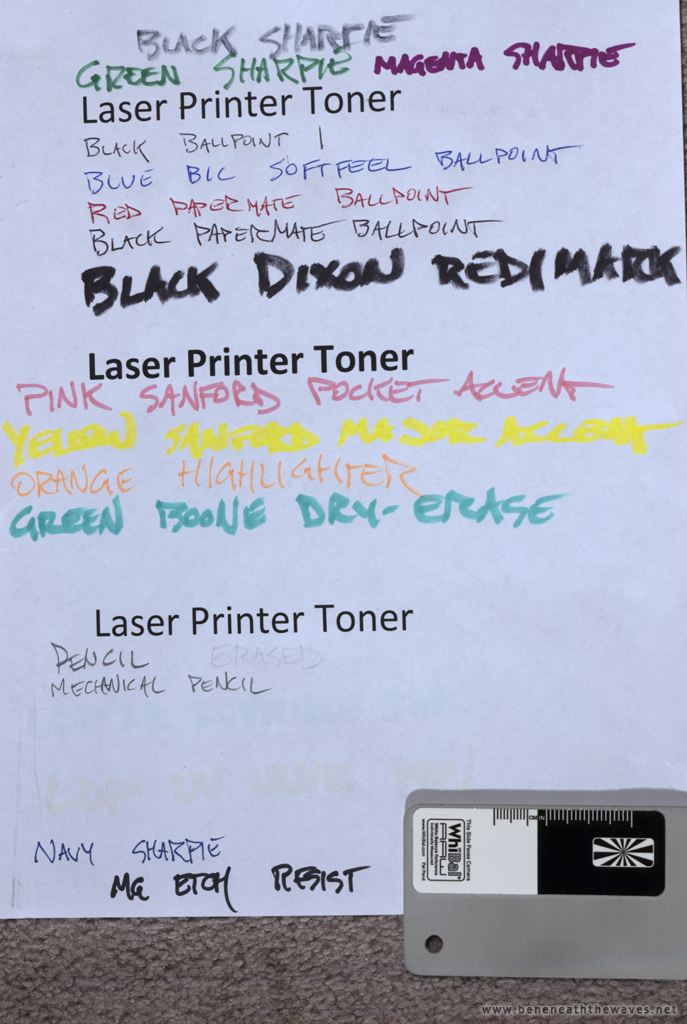 BLACK SHARPIE
GREEN SHARPIE MAGENTA SHARPIE
Laser Printer Toner
BLACK BALLPOINT |
BLUE BIC SOFTFEEL BALLPOINT
RED PAPERMATE BALLPOINT
BLACK PAPERMATE BALLPOINT
BLACK DIXON REDIMARK
Laser Printer Toner
PINK SANFORD POCKET ACCENT
YELLOW SANFORD MAJOR ACCENT
ORANGE HIGHLIGHTER
GREEN BOONE DRY-ERASE
Laser Printer Toner
PENCIL ERASED
MECHANICAL PENCIL
NAVY SHARPIE
MG ETCH RESIST
This Side Faces Camera
WhiBal
White Balance Reference
www.WhiBal.com Pat Pend
CM IN
www.beneneaththewaves.net